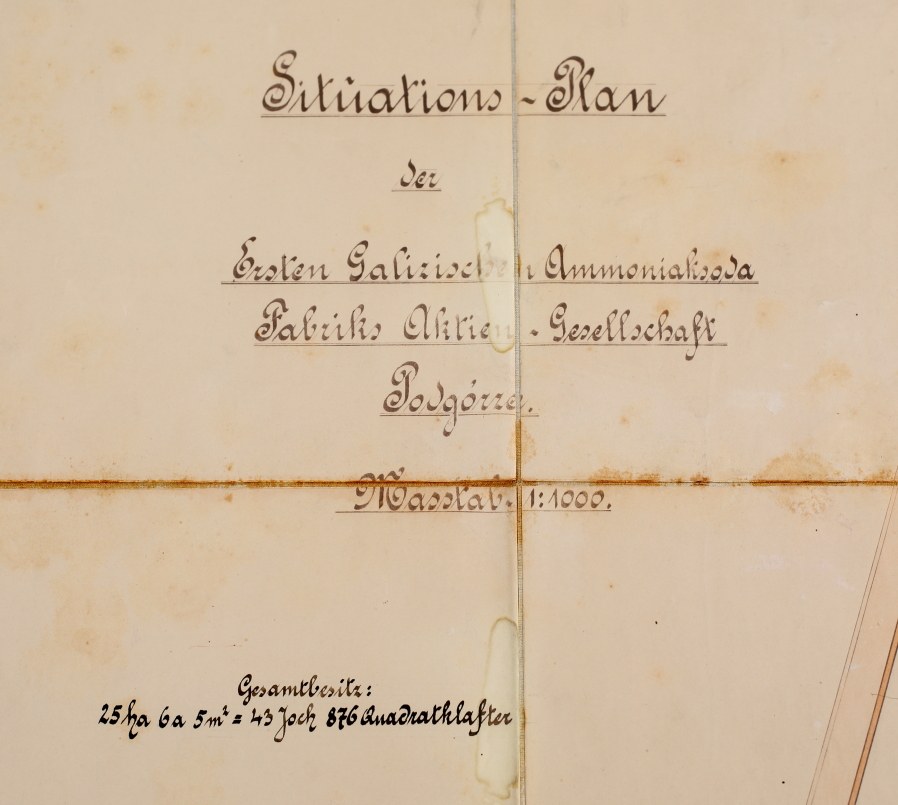 Situations-Plan
der
Ersten Galizischen Ammoniaksoda
Fabriks Aktien-Gesellschaft
Podgórze.
Masstab 1:1000.
Gesamtbesitz:
25 ha 6 a 5 m² = 43 Joch 876 Quadratklafter